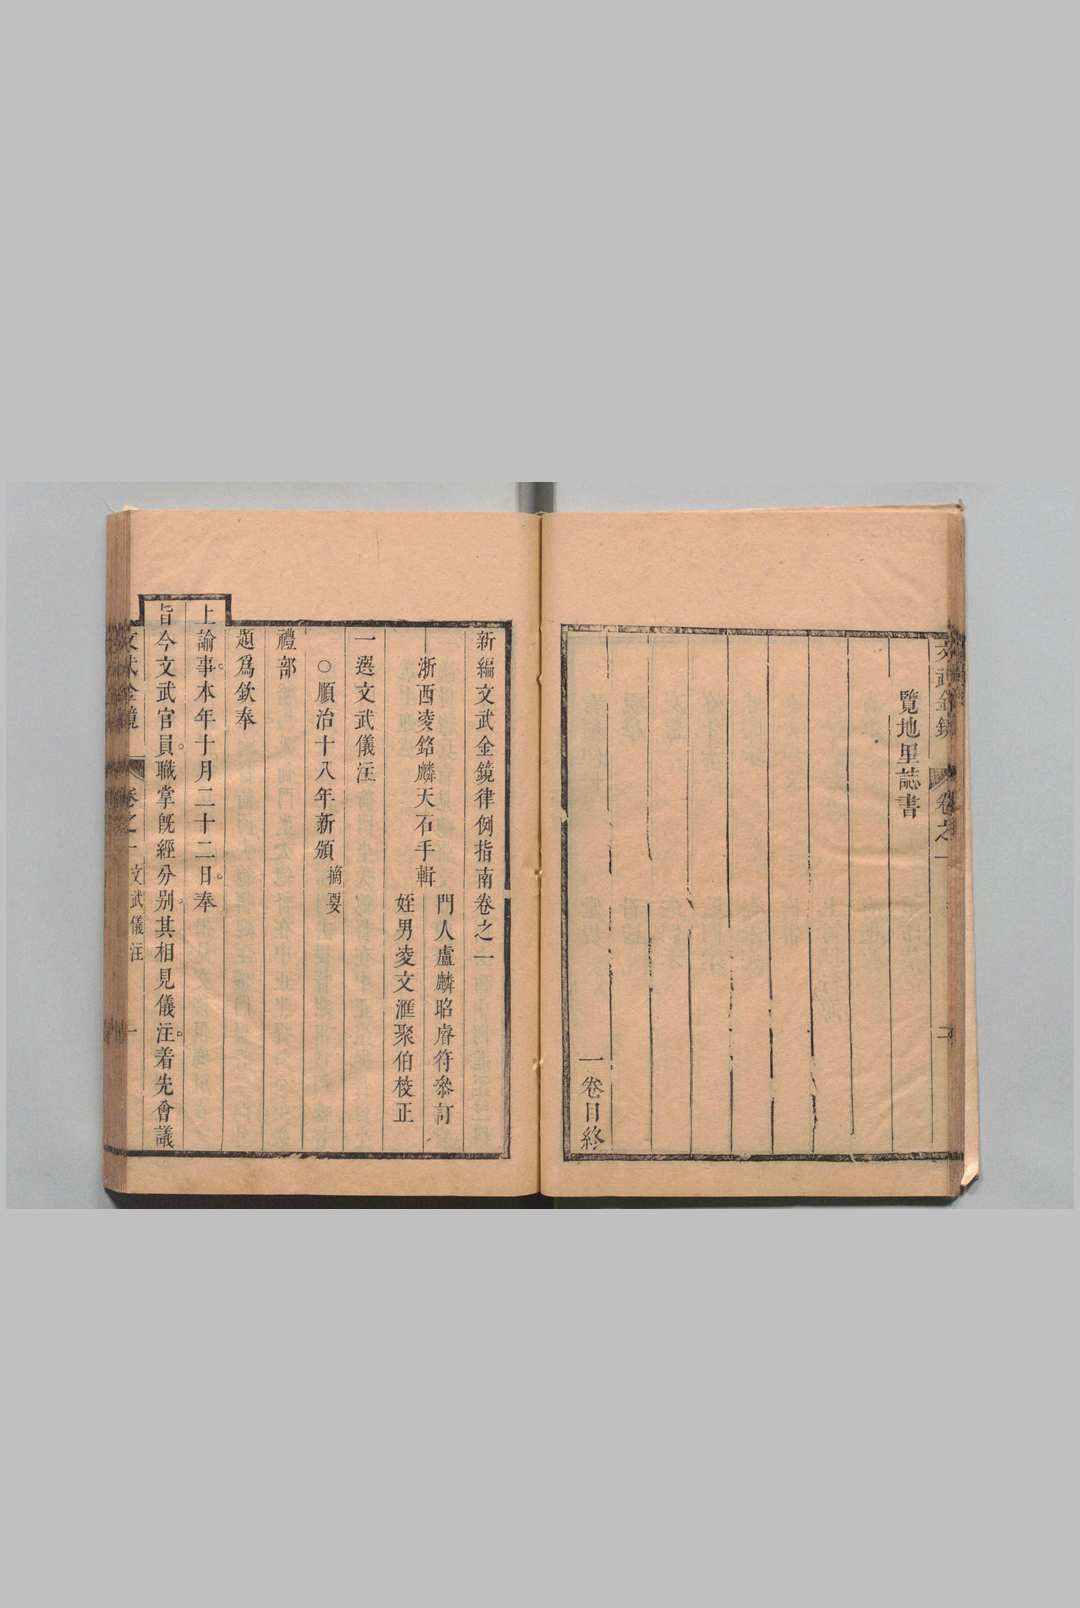 文武金鏡 卷之一 二
覽地里誌書
一卷目終
新編文武金鏡律例指南卷之一
浙西凌銘麟天石手輯
門人盧麟昭睿符叅訂
姪男凌文滙聚伯校正
一選文武儀注
○順治十八年新頒摘要
禮部
題爲欽奉
上諭事本年十月二十二日奉
旨今文武官員職掌旣經分别其相見儀注着先會議
文武金鏡 卷之一 文武儀注 一